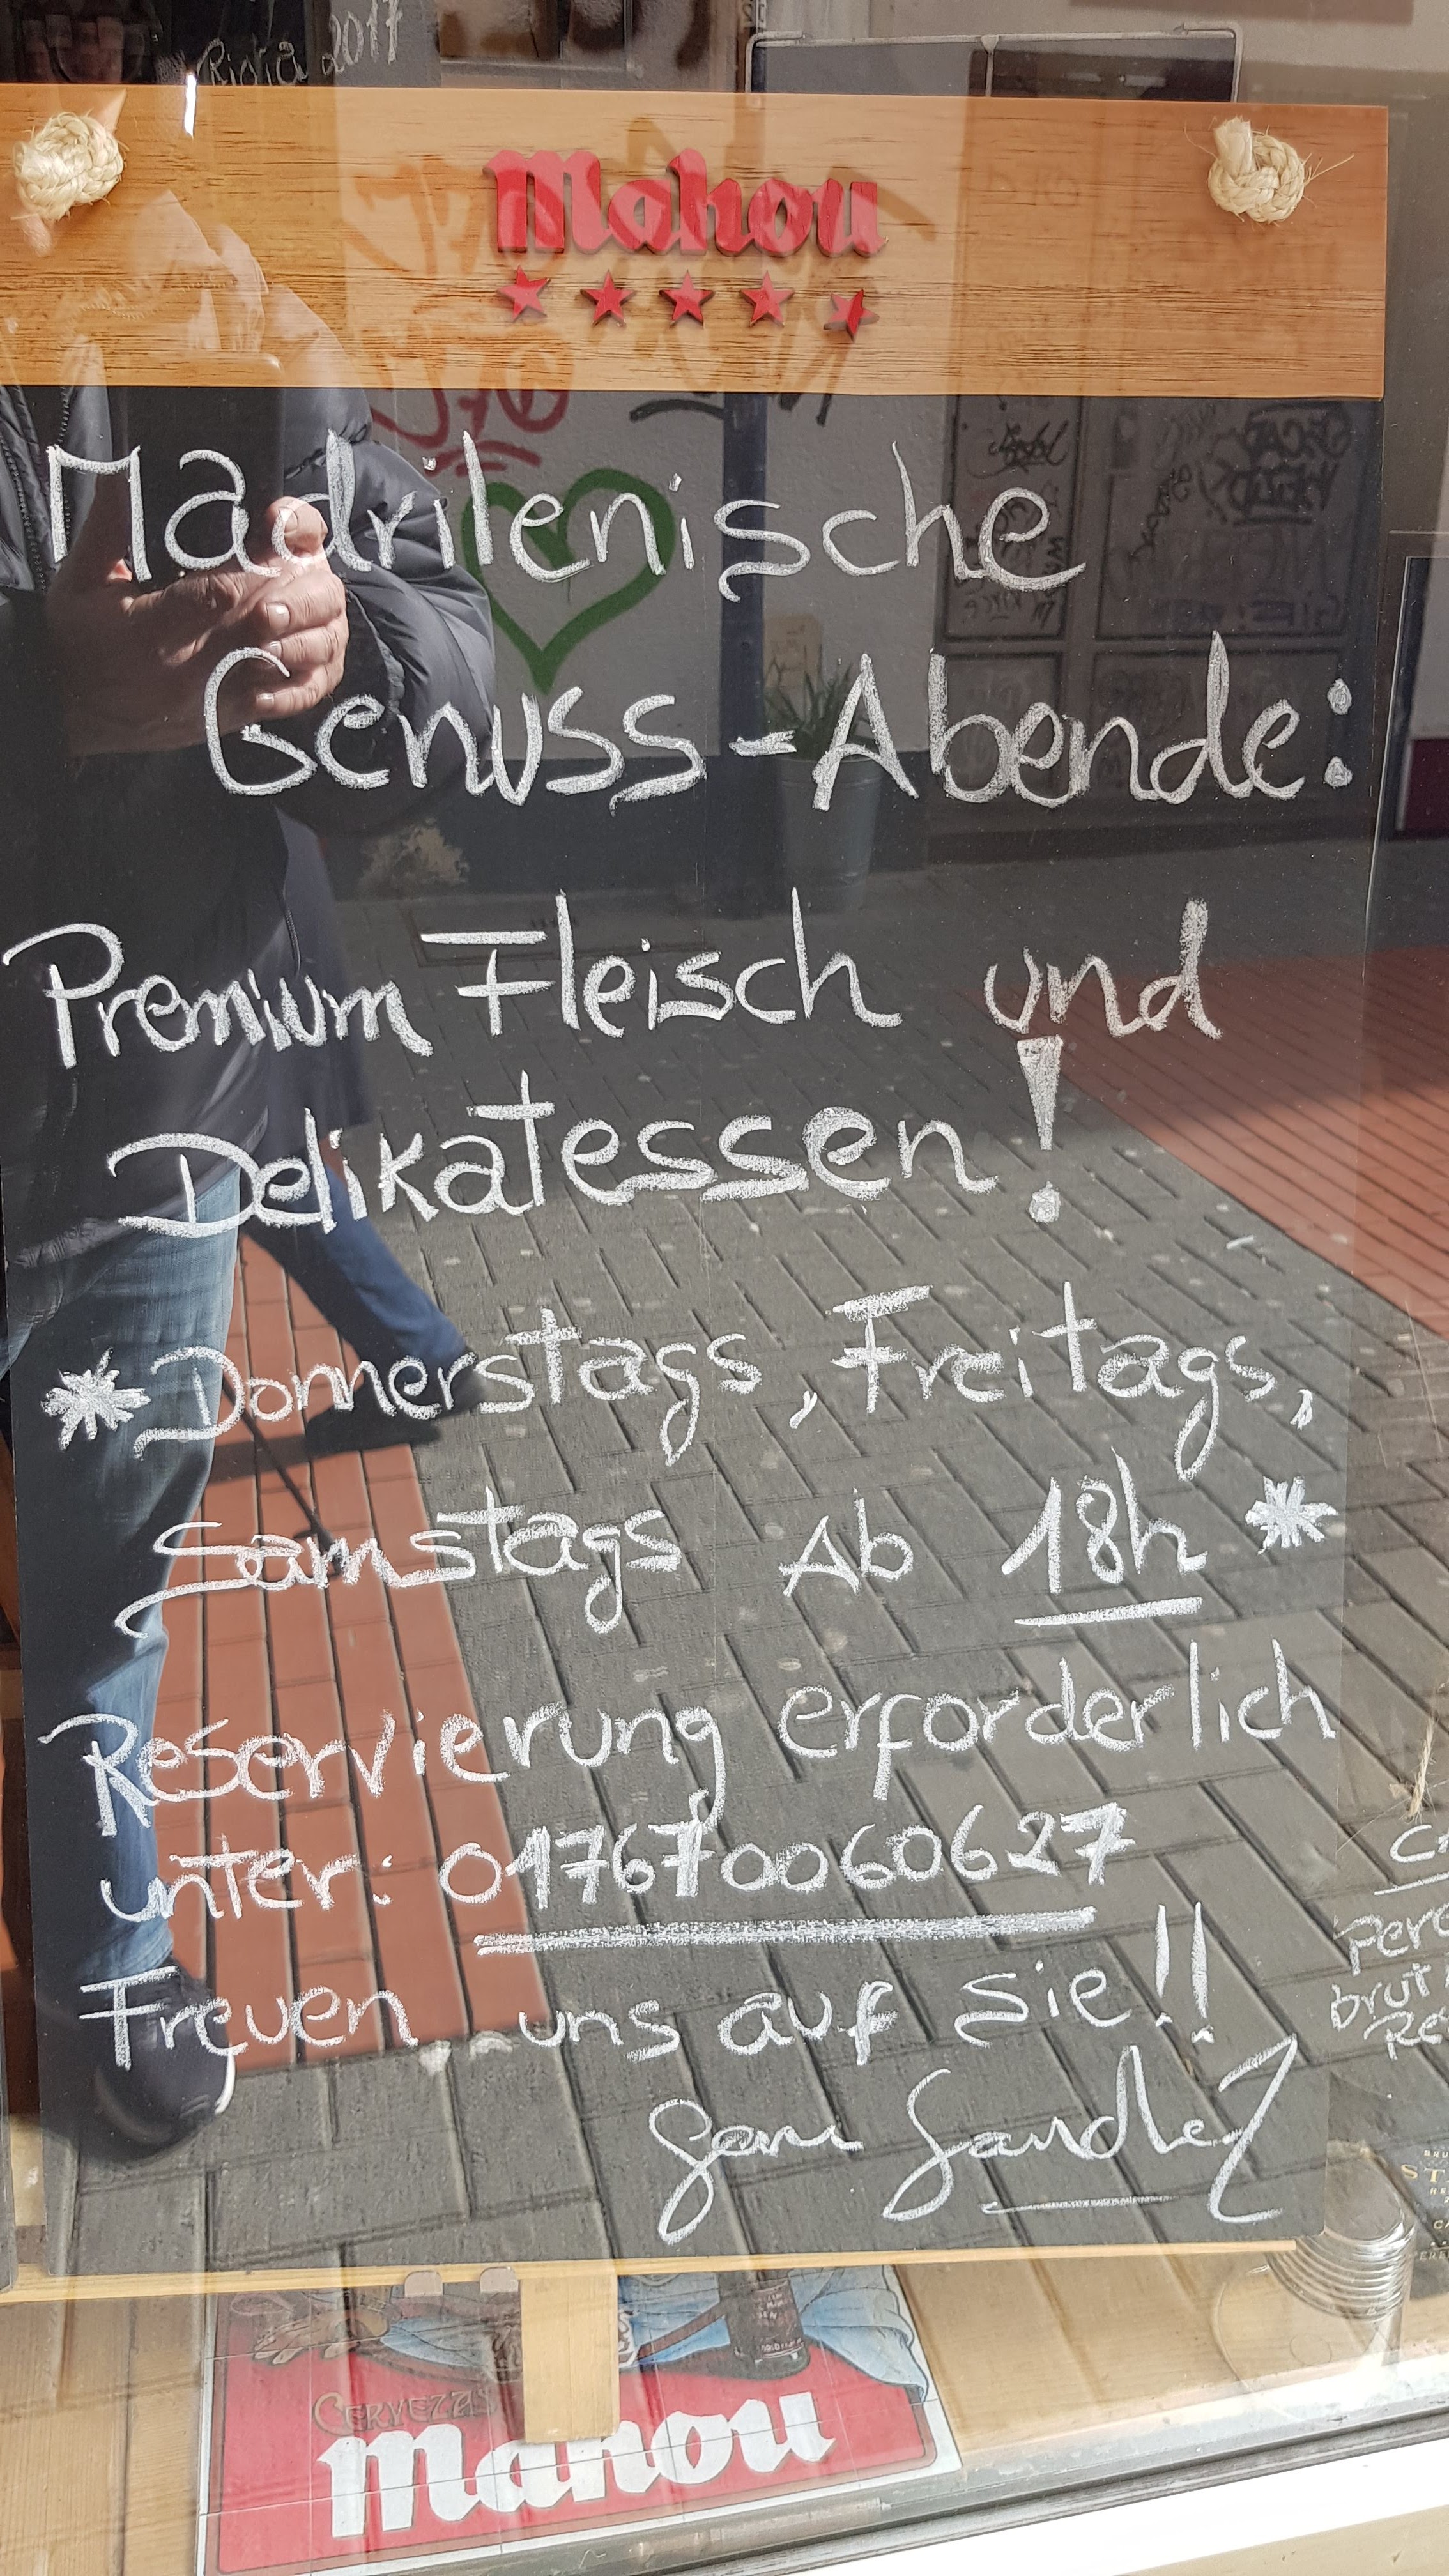 Rioja 2017
Mahou
Madrilenische
Genuss-Abende:
Premium Fleisch und
Delikatessen!
*Donnerstags, Freitags,
Samstags Ab 18h*
Reservierung erforderlich
unter: 017670060627
Freuen uns auf Sie!!
CERVEZAS
mahou